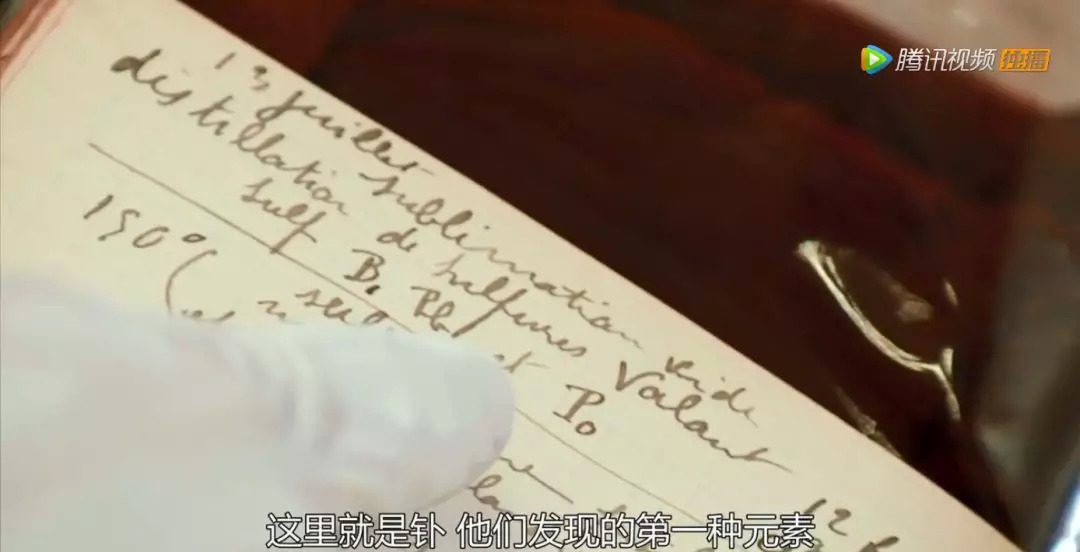 腾讯视频 独播
13 juillet sublimation vide
distillation de sulfures Valant
sulf Bi Pb et Po
150° (
12
这里就是钋 他们发现的第一种元素